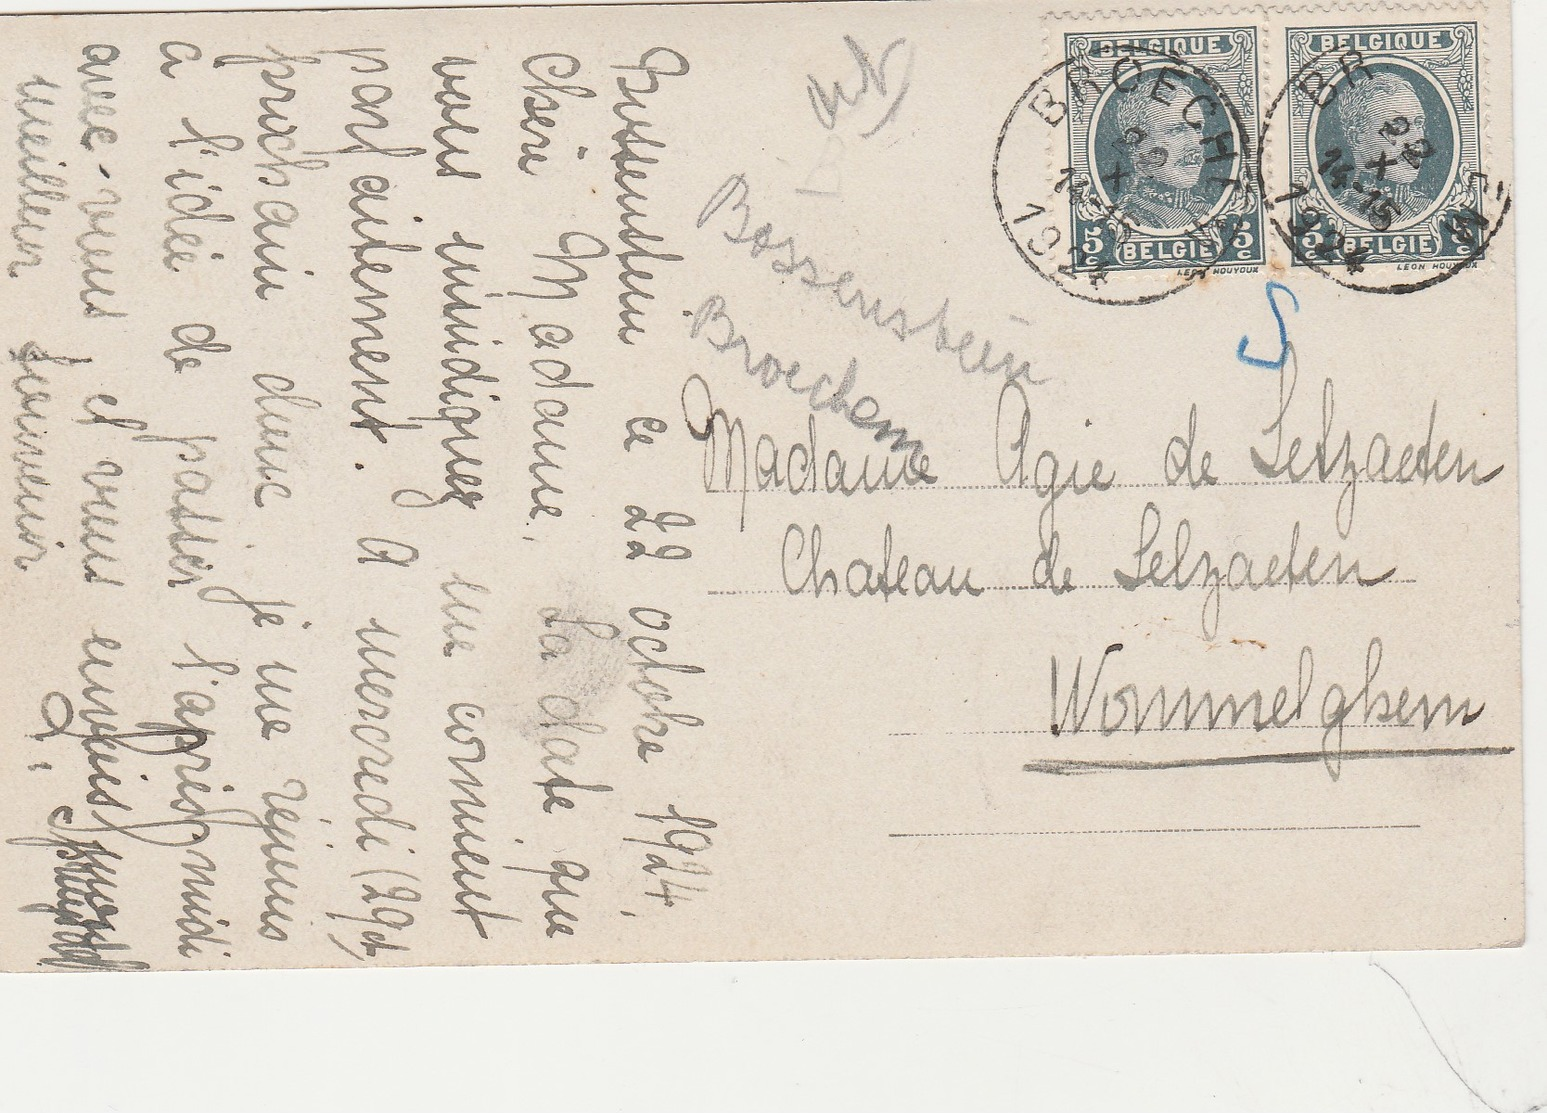 Bossenstein ce 22 octobre 1924.
Chère Madame. La date que
vous indiquez me convient
parfaitement. A mercredi (29 ct)
prochain donc je me réjouis
à l'idée de passer l'après midi
avec vous et vous envoies mon
meilleur souvenir
Bossenstein
Broechem
BELGIQUE
5c BELGIË 5c
LEON HOUYOUX
BELGIQUE
5c BELGIË 5c
LEON HOUYOUX
BROECHEM
22 X
14-15
1924
BR EM
22 X
14-15
1924
5
Madame Agie de Selzaeten
Chateau de Selzaeten
Wommelghem